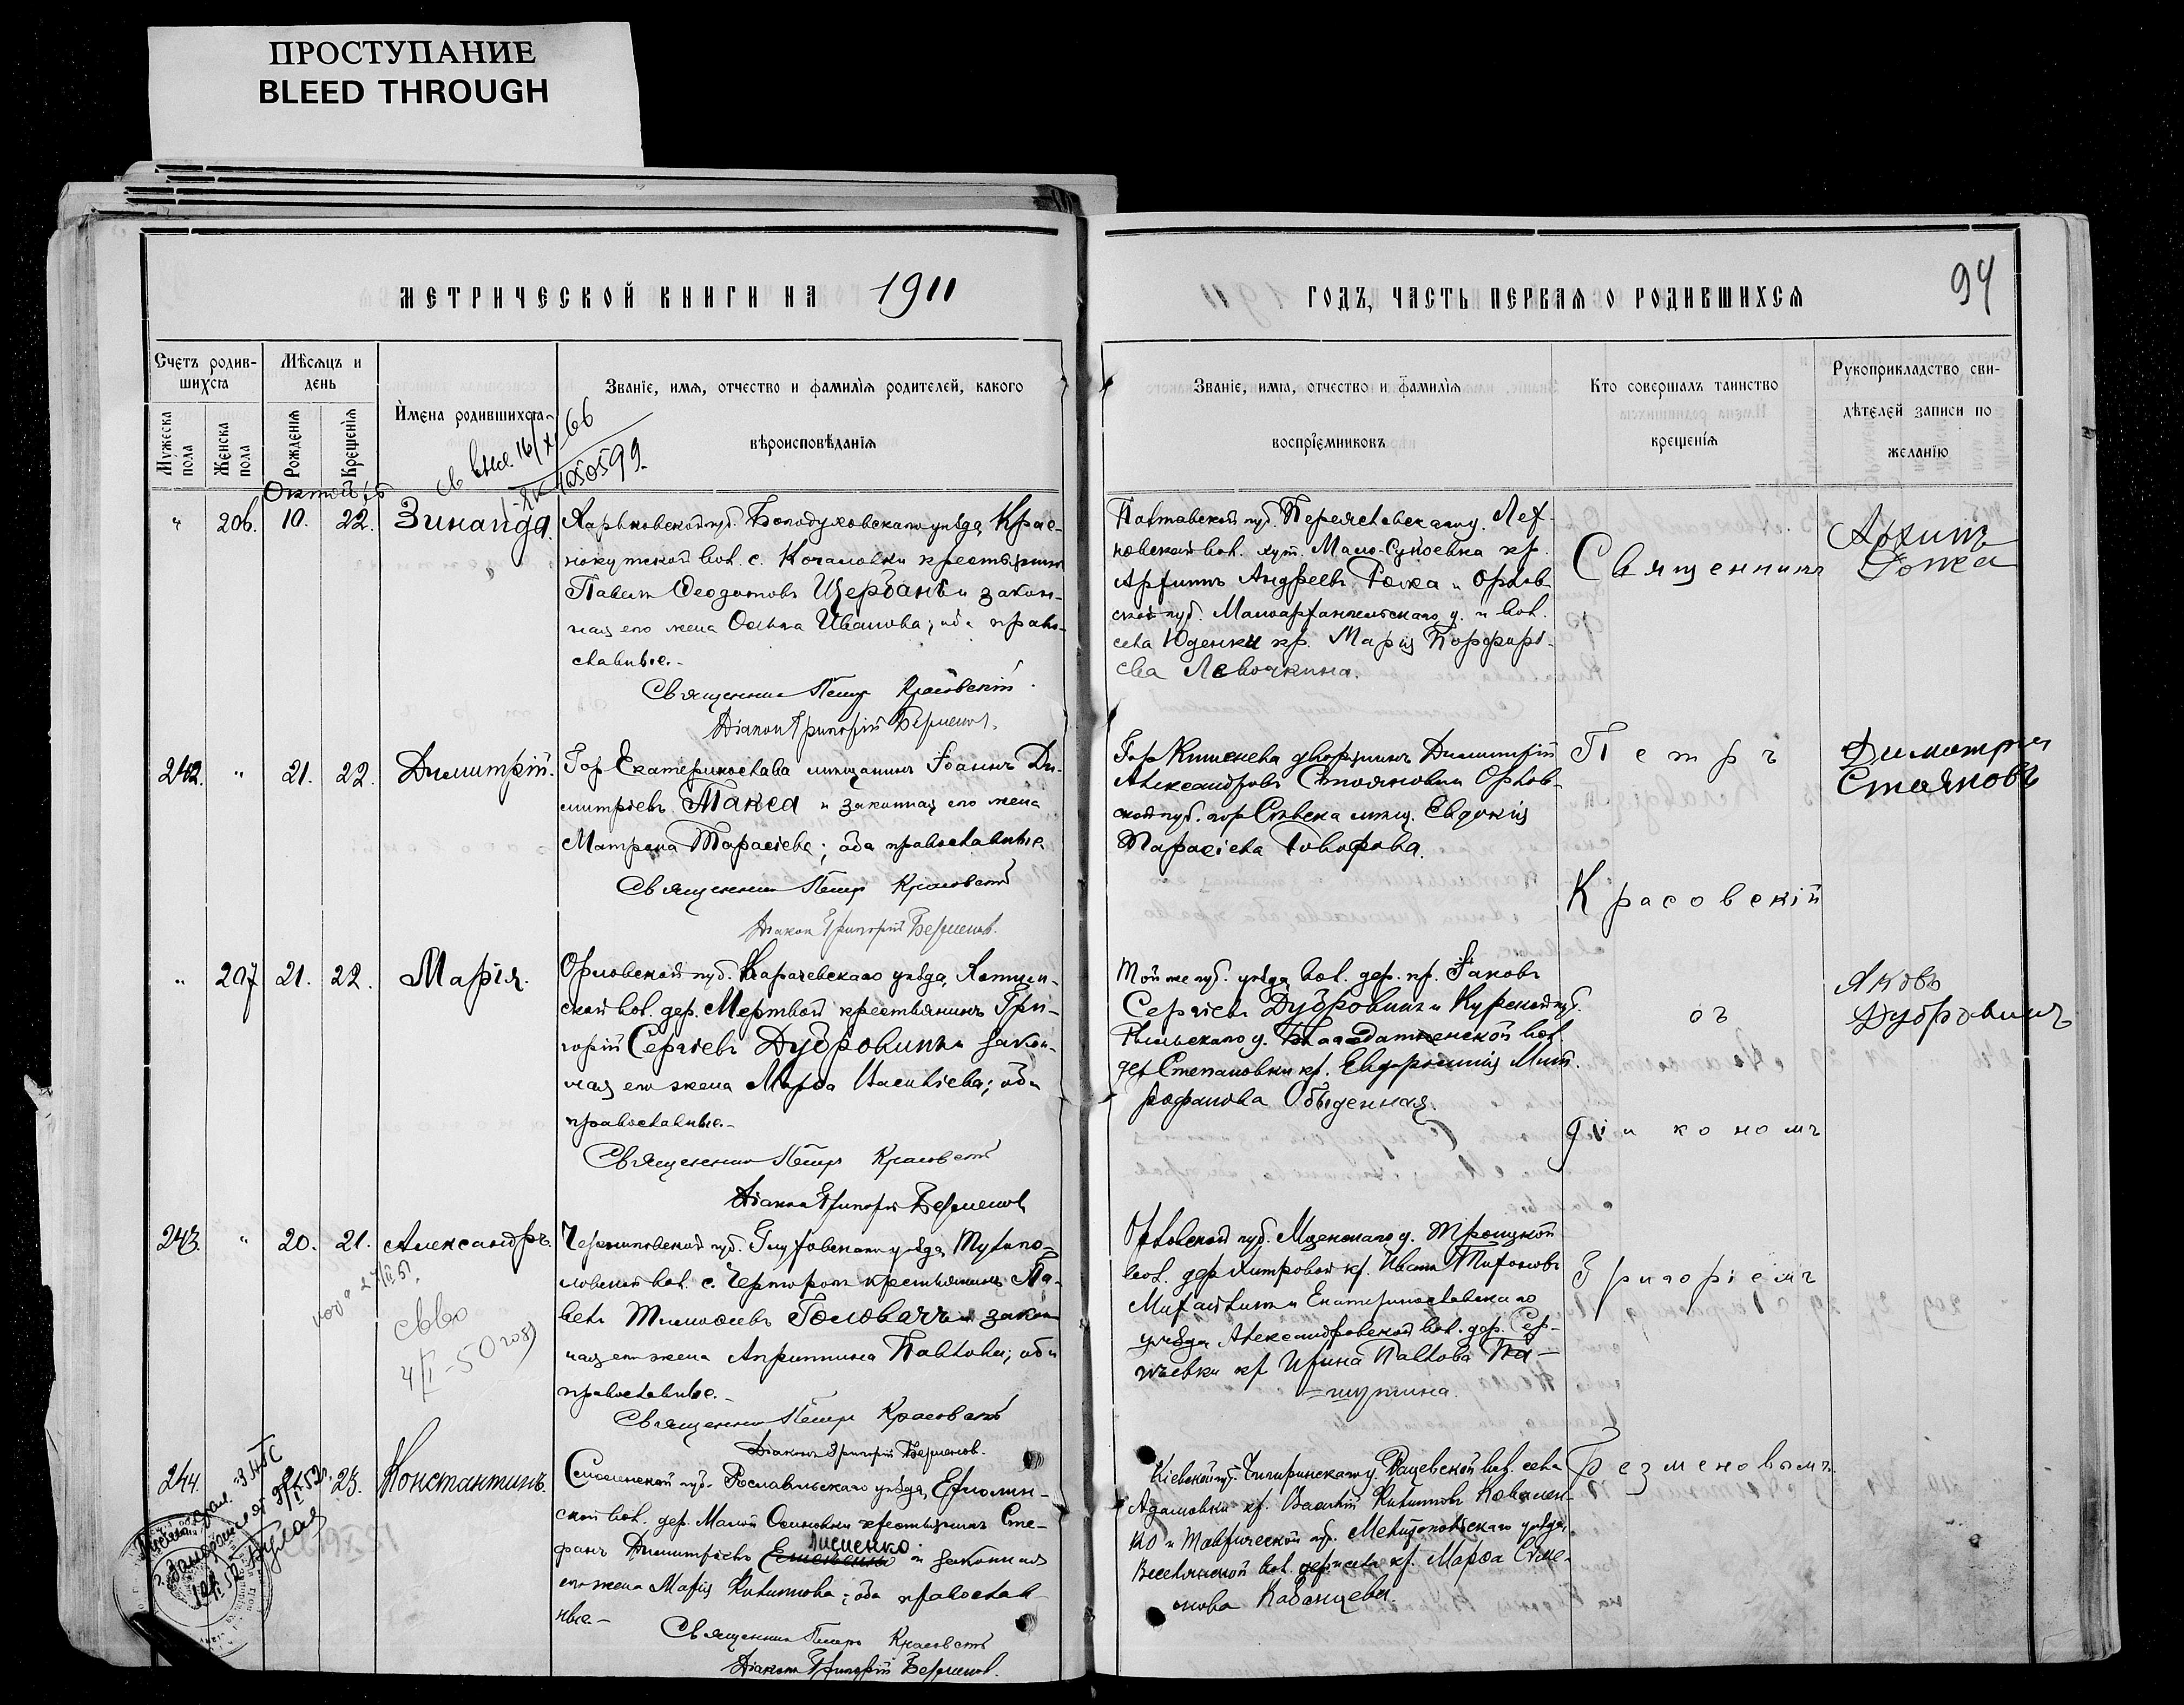 ПРОСТУПАНИЕ
BLEED THROUGH
МЕТРИЧЕСКОЙ КНИГИ НА 1911
ГОДЪ, ЧАСТЬ ПЕРВАЯ О РОДИВШИХСЯ
94
Счетъ родив-
шихся
Мужеска пола
Женска пола
Мѣсяцъ и
день
Рожденія
Крещенія
Имена родившихся
Званіе, имя, отчество и фамилія родителей, какого
вѣроисповѣданія
Званіе, имя, отчество и фамилія
воспріемниковъ
Кто совершалъ таинство
крещенія
Рукоприкладство сви-
дѣтелей записи по
желанію
Октябрь
" 206. 10. 22. Зинаида.
Харьковской губ. Богодуховскаго уѣзда, Крас-
нокутской вол. с. Качаловки крестьянинъ
Павелъ Ѳеодотовъ Щербань и закон-
ная его жена Ольга Иванова; оба право-
славные.-
Священникъ Петръ Красовскій
Діаконъ Григорій
Полтавской губ. Переяславскаго у.
вол. хут. Мало-Суноевка кр.
Архипъ Андреевъ Рожка и Орлов-
ской губ. Малоархангельскаго у. и вол.
села Юденки кр. Марія Порфирі-
ева Левочкина.
Священникъ
Архипъ
Рожка
242. " 21. 22. Димитрій.
Гор. Екатеринослава мѣщанинъ Іоаннъ Ди-
митріевъ Такса и законная его жена
Матрона Тарасіева; оба православные
Священникъ Петръ Красовскій
Діаконъ Григорій
Гор. Кишенева дворянинъ Димитрій
Александровъ Стояновъ и Орлов-
ской губ. гор. Сѣвска мѣщ. Евдокія
Тарасіева Говорова.
Петръ
Димитрий
Стояновъ
Красовскій
" 207 21. 22. Марія.
Орловской губ. Карачевскаго уѣзда,
ской вол. дер. Мертвой крестьянинъ Гри-
горій Сергіевъ Дубровинъ и закон-
ная его жена Марѳа Василіева; оба
православные.-
Священникъ Петръ Красовскій
Діаконъ Григорій
Той же губ. уѣзда, вол. дер. кр. Іаковъ
Сергіевъ Дубровинъ и Курской губ.
Рыльскаго у. Благодатенской вол.
дер. Степановки кр. Евфросинія Мит-
рофанова Обыденная.
съ
Яковъ
Дубровинъ
діакономъ
243. " 20. 21. Александръ.
Черниговской губ. Глуховскаго уѣзда,
вол. с. Чертороги крестьянинъ Па-
велъ Тимоѳеевъ Головачъ и закон-
ная его жена Агриппина Павлова; оба
православные.-
Священникъ Петръ Красовскій
Діаконъ Григорій
Орловской губ. Мценскаго у. Троицкой
вол. дер. Хитровой кр. Иванъ Тихоновъ
и Екатеринославскаго
уѣзда, Александровской вол. дер. Сер-
гѣевки кр. Ирина Павлова
Григоріемъ
244. 23. Константинъ.
Смоленской губ. Рославльскаго уѣзда,
ской вол. дер. Малой Осиновки крестьянинъ Сте-
фанъ Димитріевъ Лисиенко и законная
его жена Марія Филипова; оба православ-
ные-
Священникъ Петръ Красовскій
Діаконъ Григорій
Кіевской губ. Чигиринскаго у. вол. села
Адамовки кр. Василій Филиповъ Ковален-
ко и Таврической губ. Мелитопольскаго уѣзда,
вол. села кр. Марѳа Симе-
онова